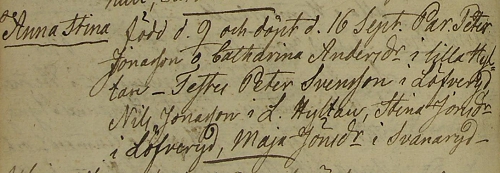 Anna Stina född d. 9 och döpt d. 16 Sept. Par. Peter
Jonasson o Catharina Andersdr i Lilla Hyl-
tan – Testes Peter Svensson i Löfveryd
Nils Jonasson i L. Hyltan, Stina Jonsdr
i Löfveryd, Maja Jönsdr i Svanaryd –